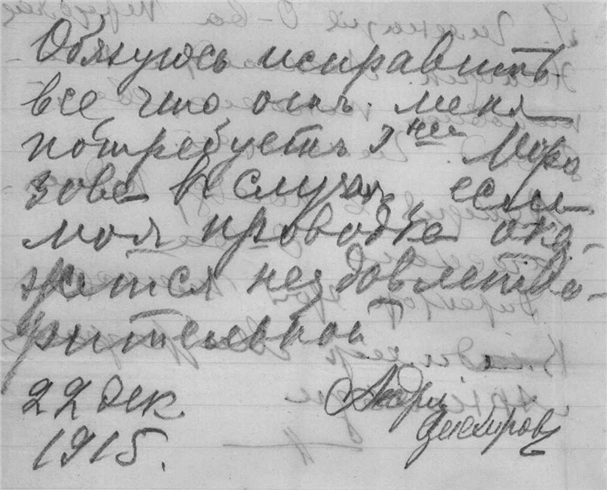 Обязуюсь исправить
все что отъ меня
потребуетъ Г-жа Моро
зова въ случаѣ если
моя проводка ока-
жется неудовлетво-
рительной
22 дек.
1915.
Андрей